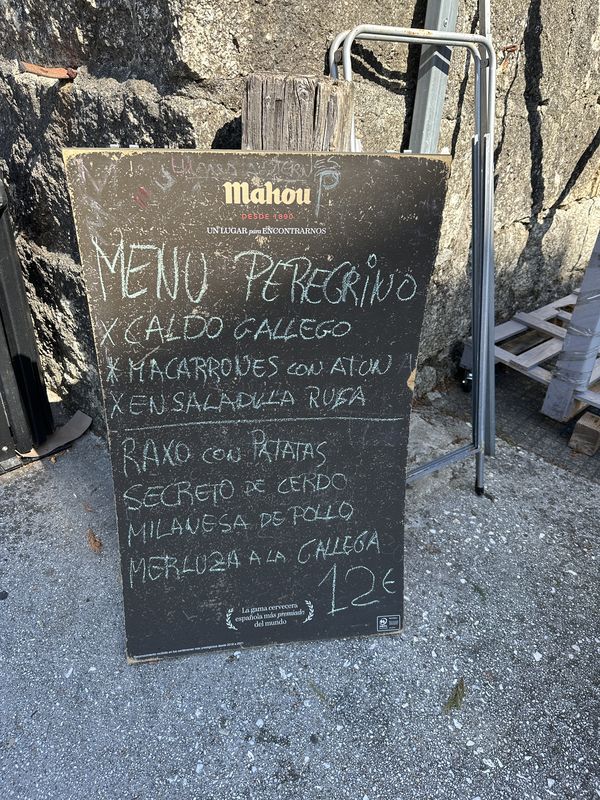 Mahou
DESDE 1890
UN LUGAR para ENCONTRARNOS
MENU PEREGRINO
X CALDO GALLEGO
X MACARRONES CON ATUN
X ENSALADILLA RUSA
RAXO CON PATATAS
SECRETO DE CERDO
MILANESA DE POLLO
MERLUZA A LA GALLEGA
12€
La gama cervecera
española más premiada
del mundo